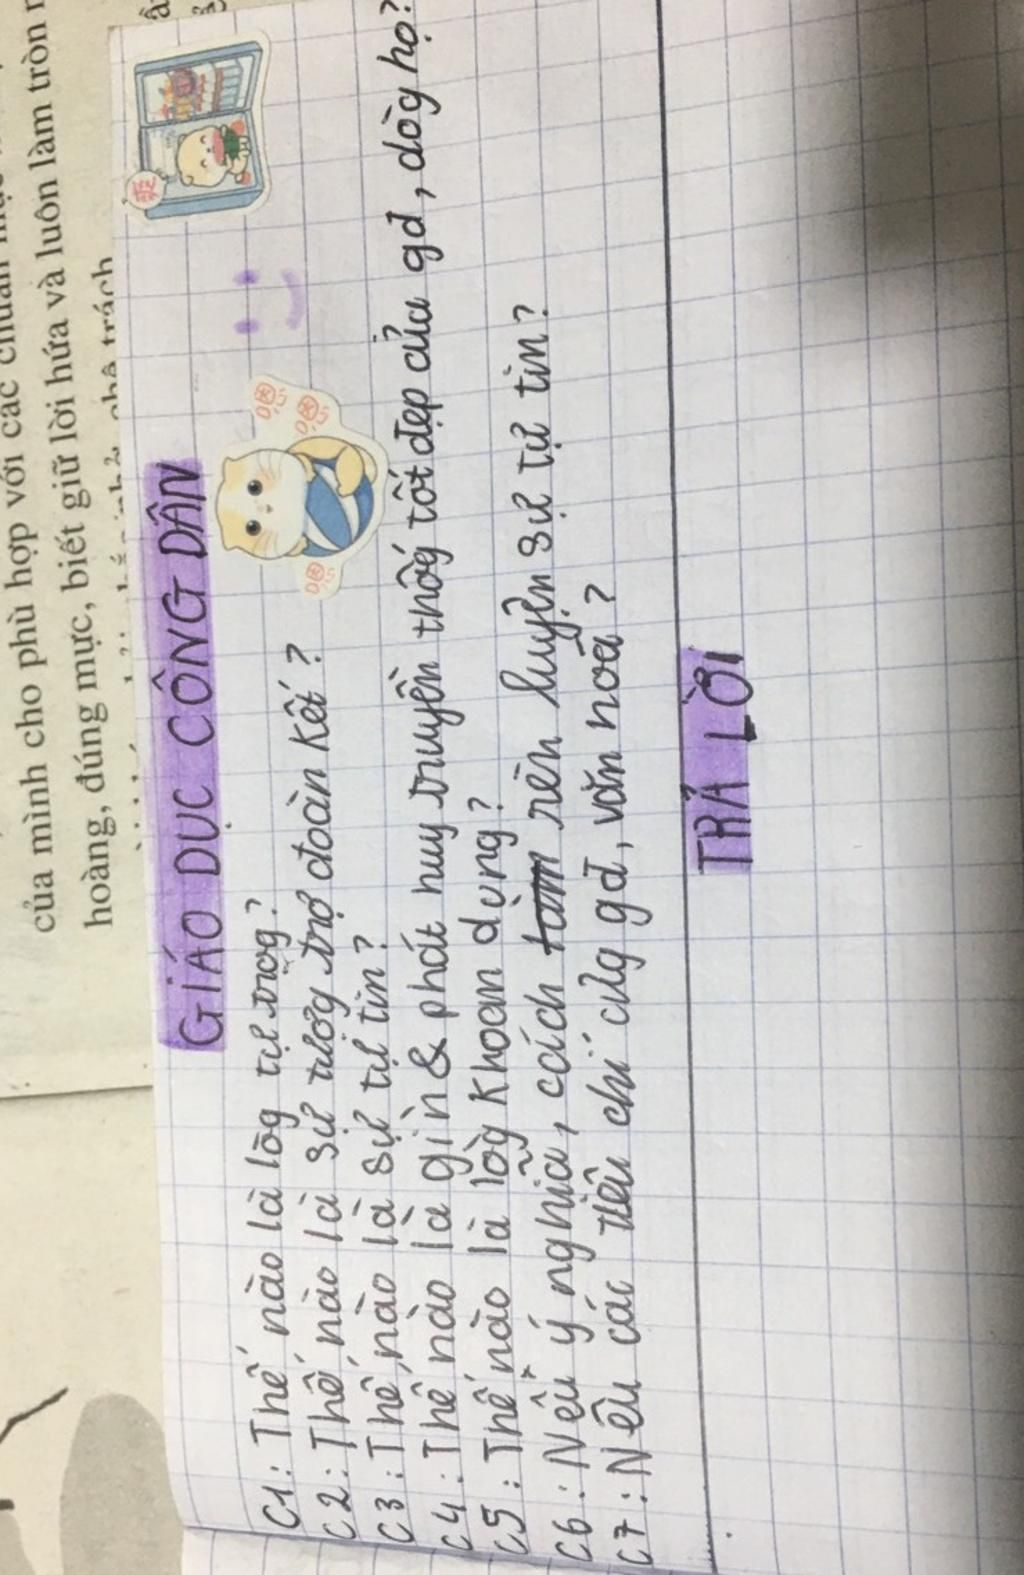 của mình cho phù hợp với các chuẩn
hoàng, đúng mực, biết giữ lời hứa và luôn làm tròn
GIÁO DỤC CÔNG DÂN
C1: Thế nào là lòg tự trọg?
C2: Thế nào là sự tươg trợ đoàn kết?
C3: Thế nào là sự tự tin?
C4: Thế nào là gìn & phát huy truyền thốg tốt đẹp của gđ, dòg họ?
C5: Thế nào là lòg khoan dụng?
C6: Nêu ý nghĩa, cách rèn luyện sự tự tin?
C7: Nêu các tiêu chí củg gđ, văn hoá?
TRẢ LỜI